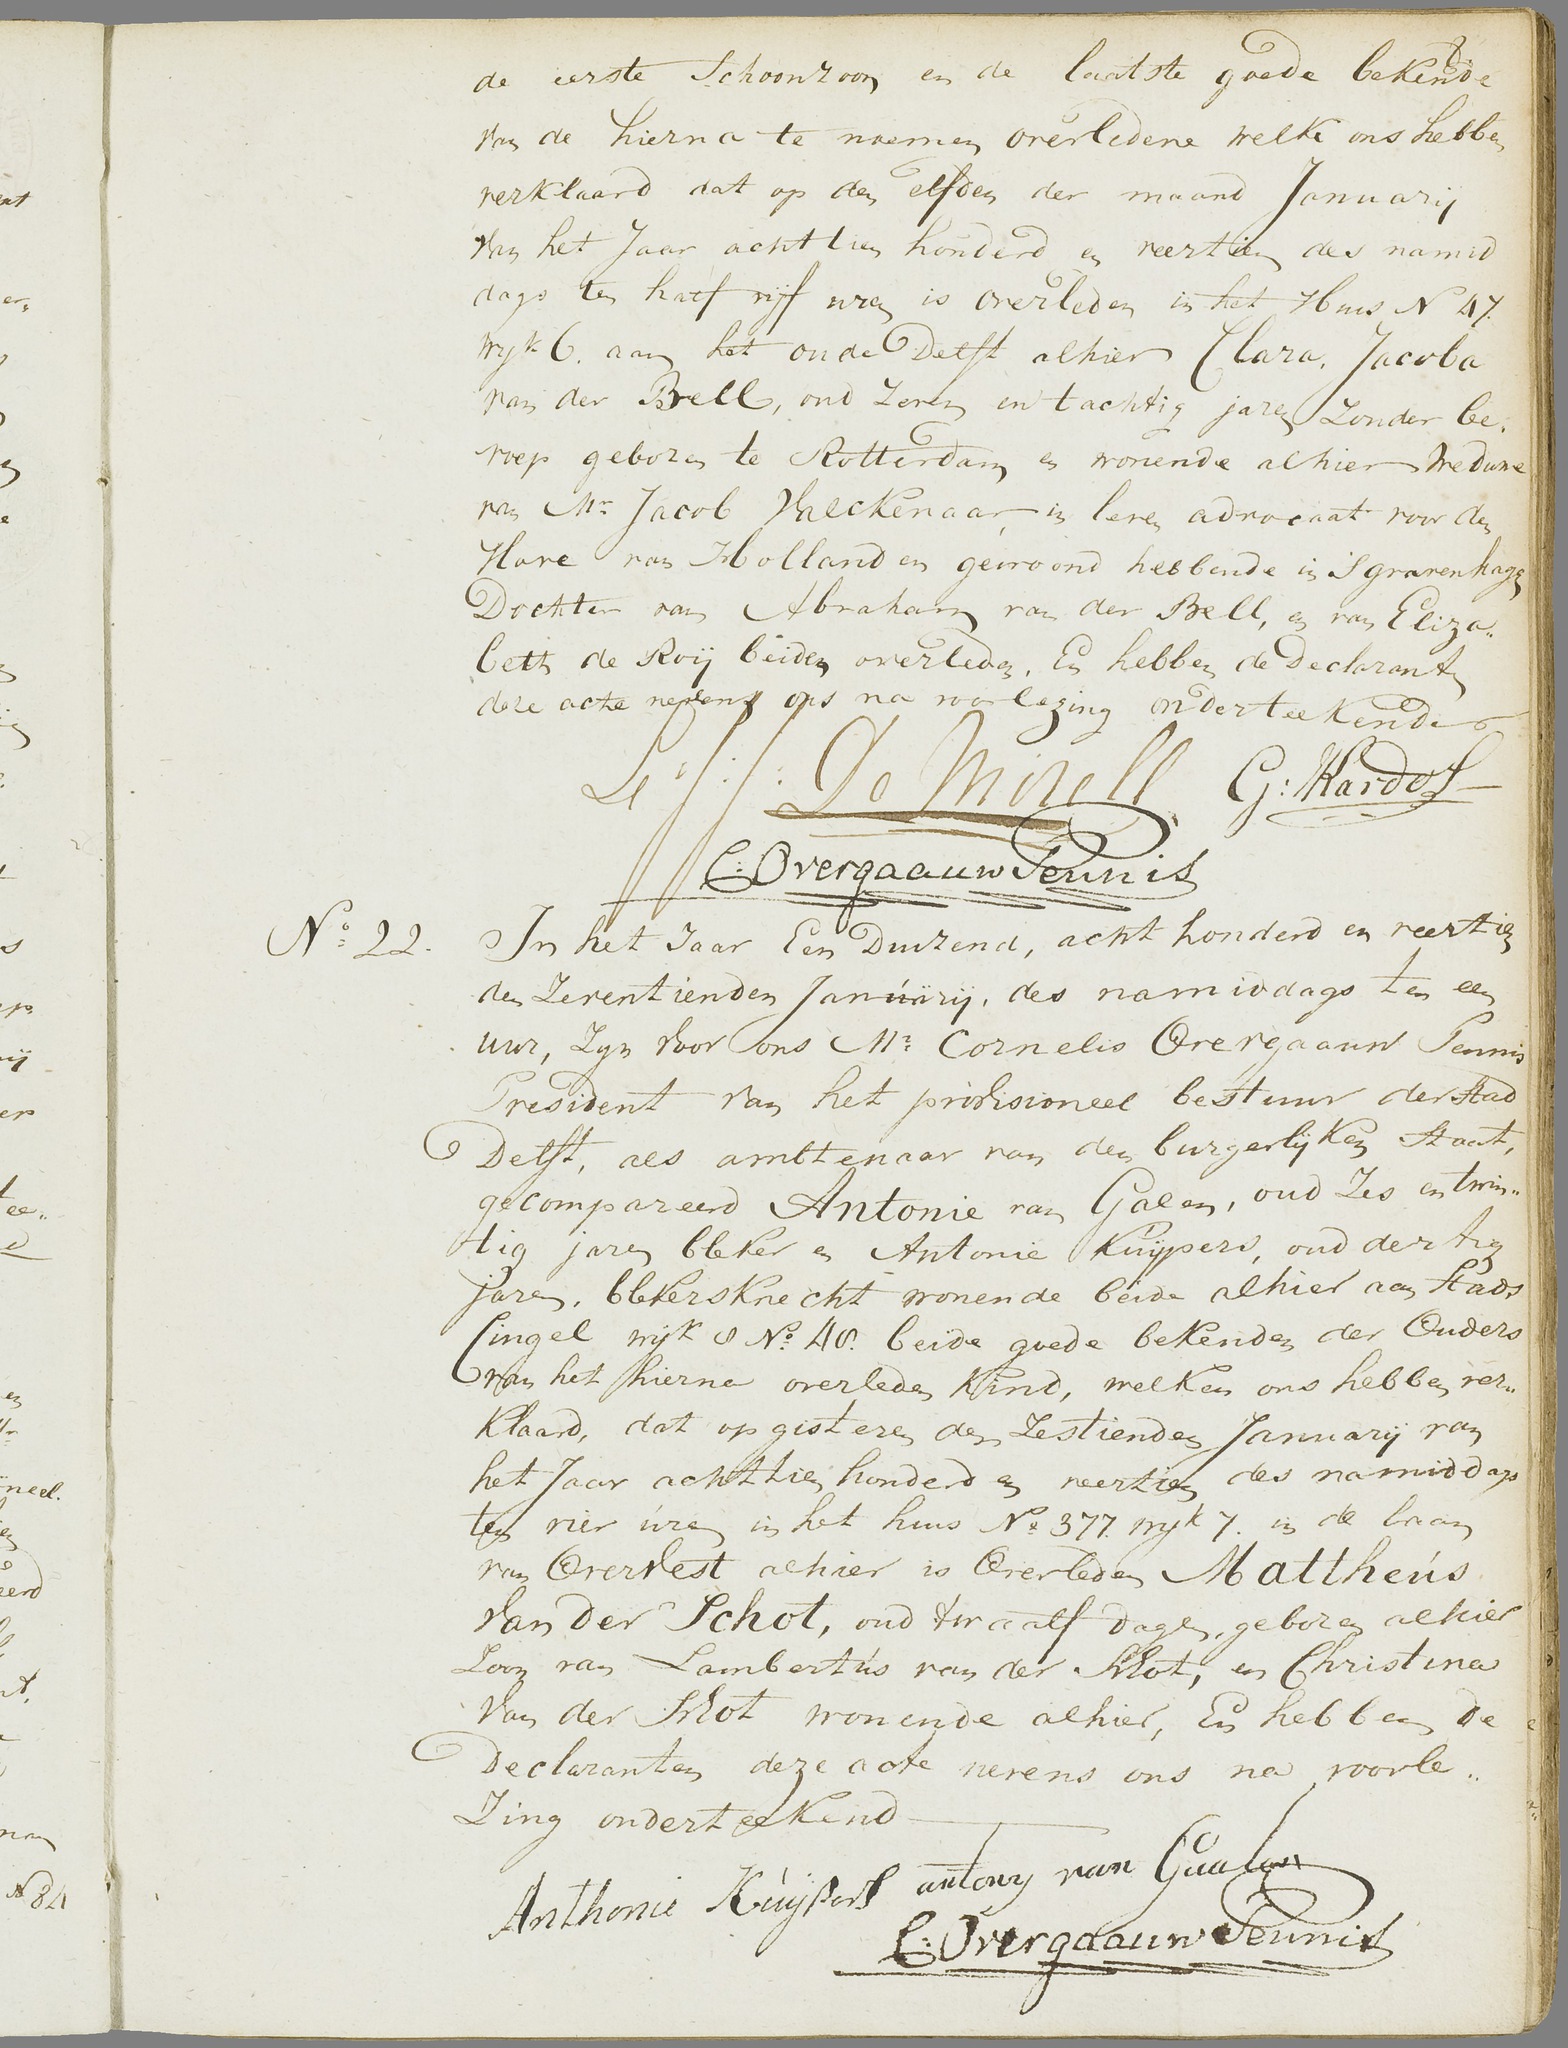 de eerste Schoonzoon en de laatste goede bekende
van de hierna te noemen overledene welke ons hebben
verklaard dat op den elfden der maand Januarij
van het Jaar achttien honderd en veertien des namid
dags ten half vijf uren is overleden in het Huis N 47.
wyk 6. aan het oude Delft alhier Clara, Jacoba
van der Brell, oud zeven en tachtig jaren zonder be,
roep geboren te Rotterdam en wonende alhier Weduwe
van Mr. Jacob Valckenaar, in leven advocaat voor den
Hove van Holland en gewoond hebbende in Sgravenhage
Dochter van Abraham van der Brell, en van Eliza„
beth de Roij beiden overleden. En hebben de Declaranten
deze acte nevens ons na voorlezing onderteekende
De Mirell G: Kardos
C: Overgaauw Teunis
No: 22. In het Jaar Een Duizend, acht honderd en veertien
den Zeventienden Januarij, des namiddags ten een
uur, Zyn voor ons Mr: Cornelis Overgaauw Pennis
President van het provisioneel bestuur der Stad
Delft, als ambtenaar van den burgerlijken Staat,
gecompareerd Antonie van Galen, oud Zes en twin„
tig jaren bleker en Antonie Kuijpers, oud dertig
jaren, blekersknecht wonende beide alhier aan Stads
Cingel wijk 8 No: 48. beide goede bekenden der Ouders
van het hierna overleden Kind, welken ons hebben ver„
klaard, dat op gisteren den Zestienden Januarij van
het Jaar achttien honderd en veertien des namiddags
ten vier uren in het huis No: 377. wyk 7. in de laan
van Overvest alhier is Overleden Mattheus
van der Schot, oud twaalf dagen, geboren alhier
Zoon van Lambertus van der Schot, en Christina
van der Schot wonende alhier, En hebben de
Declaranten deze acte nevens ons na voorle„
Zing onderteekend
Anthonie Kuijpers antony van Gaalen
C: Overgaauw Teunis